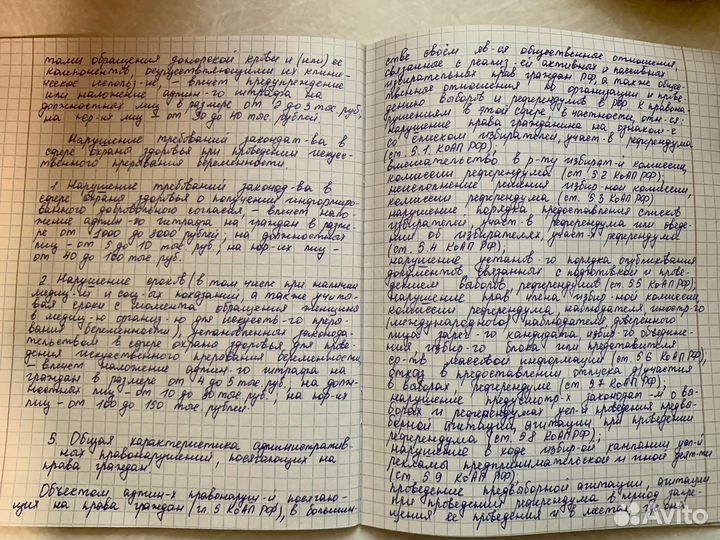 тами обращения донорской крови и (или) ее
компонентов, осуществляющими их клини-
ческое использ-ие, - влечет предупреждение
или наложение админ-го штрафа на
должностных лиц в размере от 2 до 3 тыс руб,
на юр-их лиц - от 30 до 40 тыс. рублей.
Нарушение требований законодат-ва в
сфере охраны здоровья при проведении искусс-
твенного прерывания беременности.
1. Нарушение требований законод-ва в
сфере охраны здоровья о получении информиро-
ванного добровольного согласия, - влечет нало-
жение админ-го штрафа на граждан в разме-
ре от 1000 до 3000 рублей; на должностных
лиц - от 5 до 10 тыс руб; на юр-их лиц -
от 40 до 100 тыс руб.
2. Нарушение сроков (в том числе при наличии
медиц-их и соц-ых показаний, а также с учето-
ваний сроков с момента обращения женщины
в медиц-ю организ-ю для искусств-го преры-
вания беременности), установленных законода-
тельством в сфере охраны здоровья для прове-
дения искусственного прерывания беременности,
- влечет наложение админ-го штрафа на
граждан в размере от 4 до 5 тыс. руб., на долж-
ностных лиц - от 10 до 30 тыс руб., на юр-их
лиц - от 100 до 150 тыс. рублей.
5. Общая характеристика административ-
ных правонарушений, посягающих на
права граждан.
Объектом админ-х правонаруш-й посягаю-
щих на права граждан (гл. 5 КоАП РФ), в большин-
стве своём яв-ся общественные отношения,
связанные с реализ-ей активных и пассивных
избирательных прав граждан РФ, а также общес-
твенные отношения по организации и прове-
дению выборов и референдумов в РФ. К правона-
рушениям в этой сфере, в частности, отн-ся:
нарушение права гражданина на ознаком-е
со списком избирателей, участ-в референдума
(ст. 5.1. КоАП РФ);
вмешательство в р-ту избират-й комиссии,
комиссии референдума (ст. 5.2 КоАП РФ);
неисполнение решения избир-ной комиссии,
комиссии референдума (ст. 5.3 КоАП РФ);
нарушение порядка предоставления списков
избирателей, участ-в референдума или сведе-
ний об избирателях, участ-х референдума
(ст. 5.4 КоАП РФ);
нарушение установ-го порядка опубликования
документов, связанных с подготовкой и прове-
дением выборов, референдумов (ст. 5.5 КоАП РФ);
нарушение прав члена избир-ной комиссии,
комиссии референдума, наблюдателя, иностр-го
(международного) наблюдателя, доверенного
лица зарег-го кандидата, избир-го объедине-
ния, избир-го блока или представителя
ср-тв массовой информации (ст. 5.6 КоАП РФ);
отказ в предоставлении отпуска д/участия
в выборах, референдуме (ст. 5.7 КоАП РФ);
нарушение предусмотр-х законодат-м о вы-
борах и референдумах усл-й проведения предвы-
борной агитации, агитации при проведении
референдума (ст. 5.8 КоАП РФ);
нарушение в ходе избир-ой кампании усл-й
рекламы предпринимательской и иной деят-ти
(ст. 5.9 КоАП РФ);
проведение предвыборной агитации, агитации
при проведении референдума в период запре-
щения ее проведения и в местах, где она
Avito